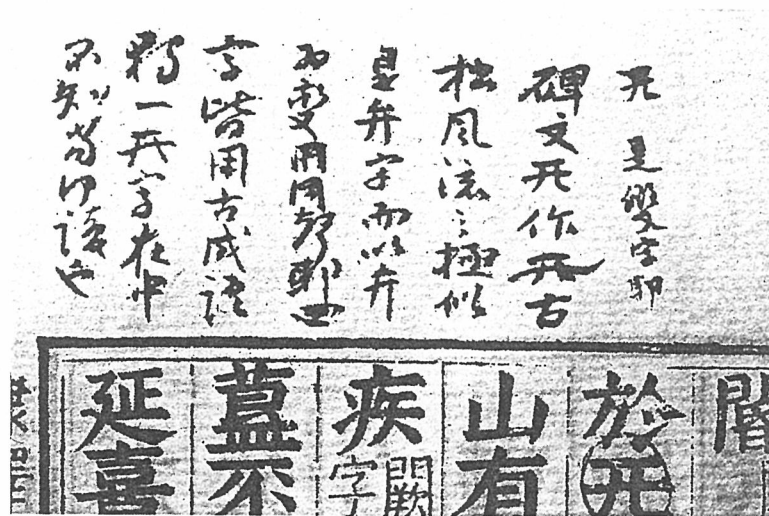 开 是變字耶
碑文开作开古
松風流之極似
是弁字而以弁
為變開同聲耶四
字皆用古成語
獨一开字在中
不知當何讀也
闇
於开
山有
疾 闕 字
蓋不
延喜